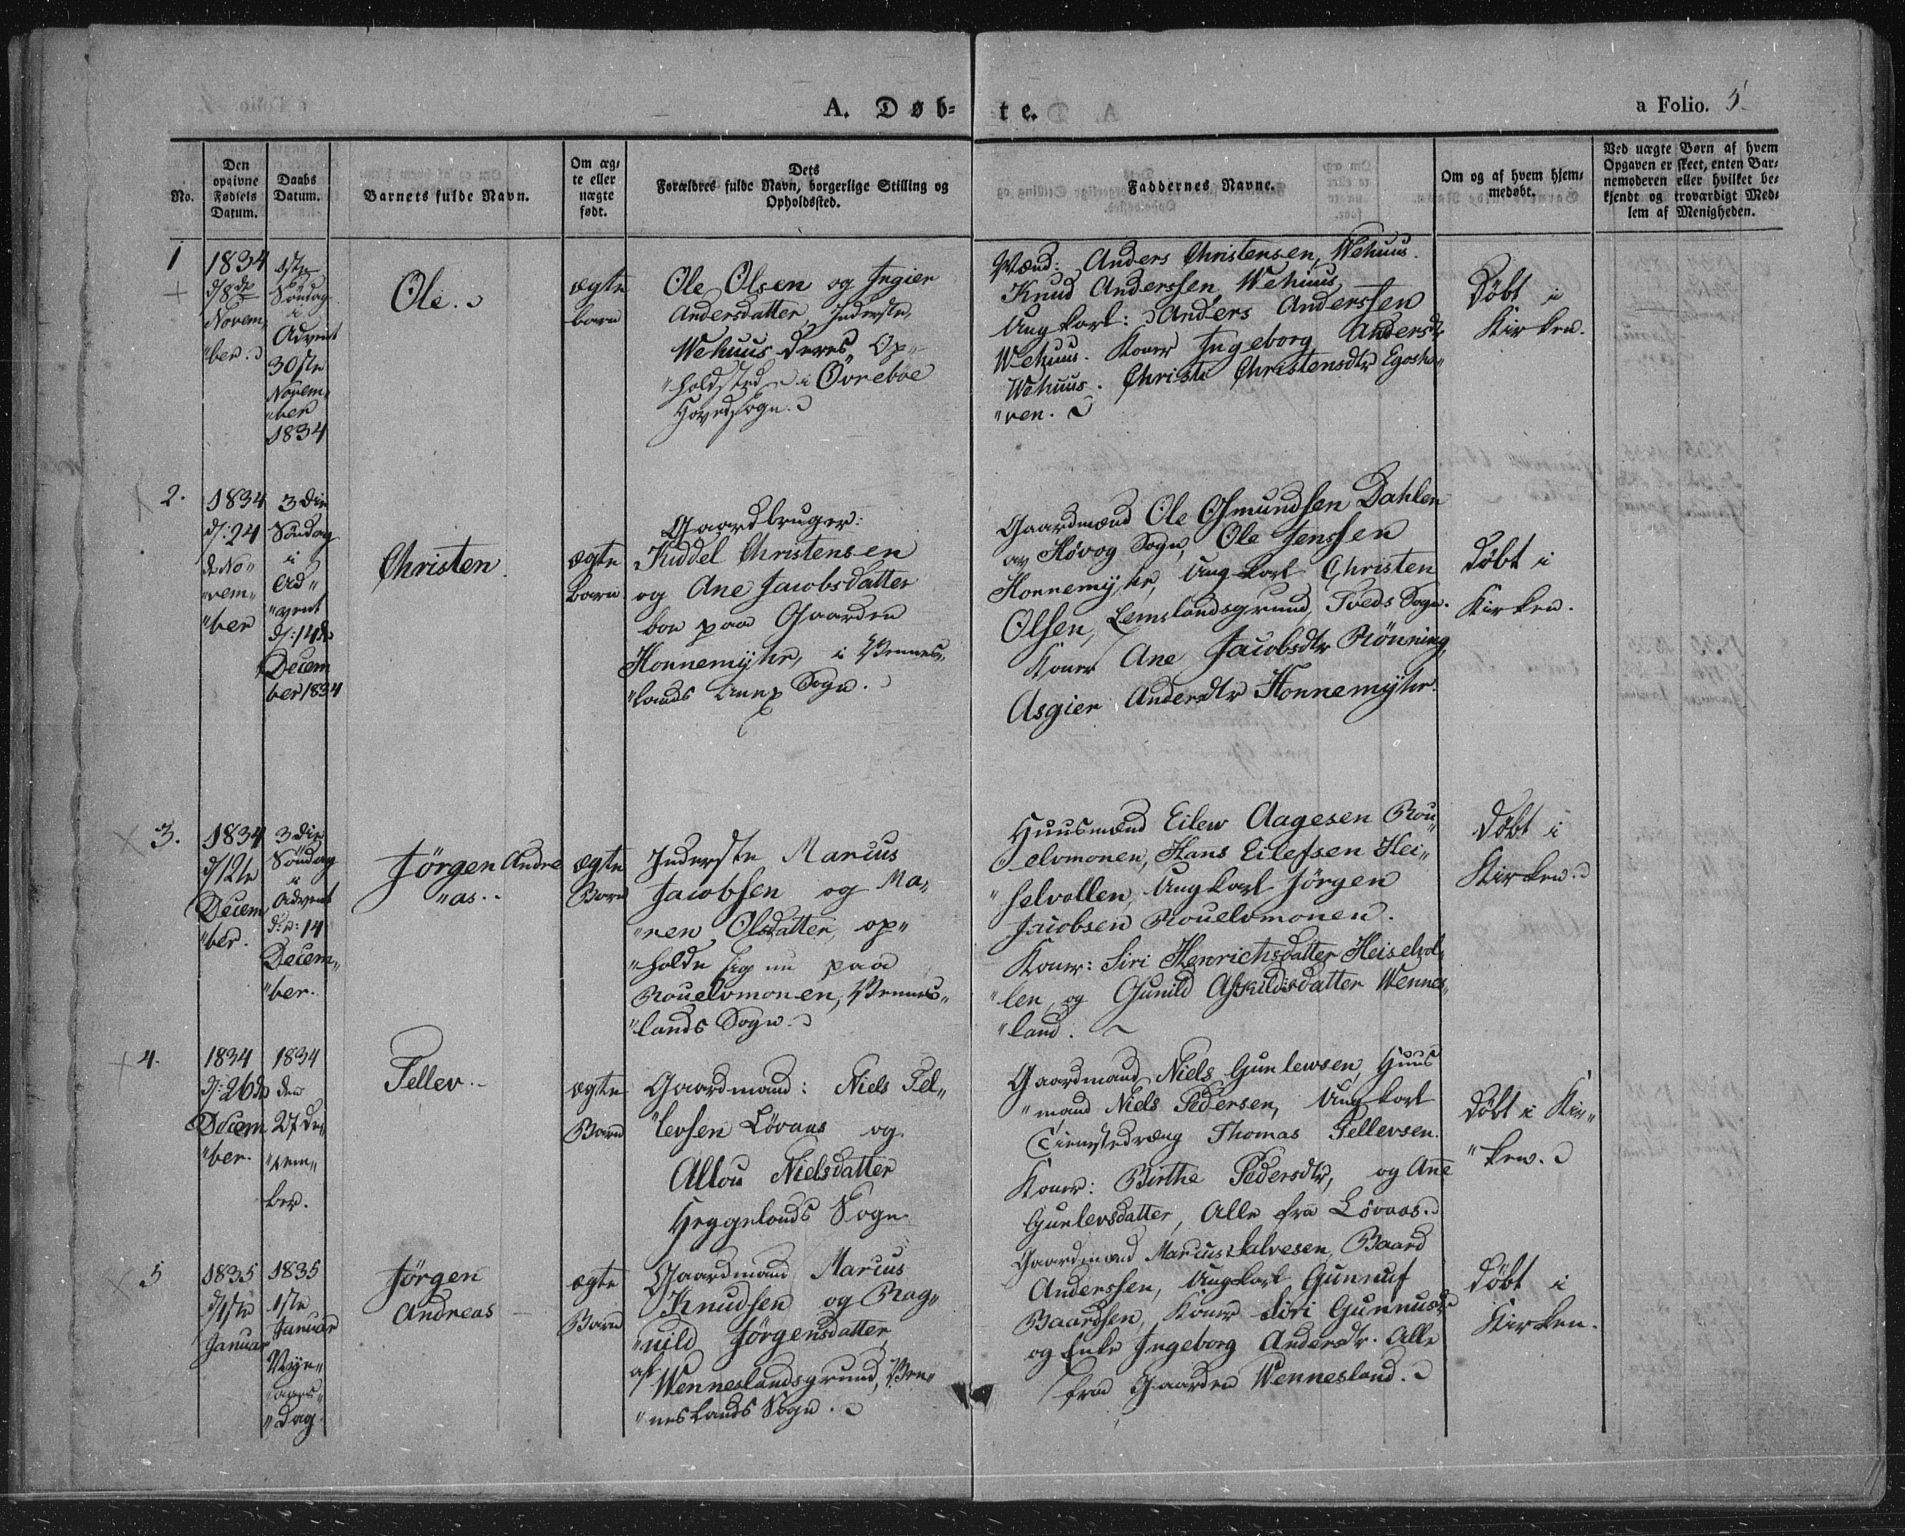 A. Døb-
te.
a Folio. 5.
No.
Den
opgivne
Fødsels
Datum.
Daabs
Datum.
Barnets fulde Navn.
Om æg-
te eller
uægte
født.
Dets
Forældres fulde Navn, borgerlige Stilling og
Opholdssted.
Faddernes Navne.
Om og af hvem hjem-
medøbt.
Ved uægte Børn af hvem
Opgaven er skeet, enten Bar-
nemoderen eller hvilket be-
kjendt og troværdigt Med-
lem af Menigheden.
1
1834
d/8de
Novem„
„ber.
1ste
Søndag
i
Advent
30ste
Novem„
„ber
1834
Ole.
ægte
barn
Ole Olsen og Ingier
Andersdatter, Inderste,
Wehuus deres Op„
„holdsted i Övreböe
Hovedsogn.
Mænd: Anders Christensen, Wehuus.
Knud Anderssen Wehuus,
Ungkarl: Anders Anderssen
Wehuus. Koner Ingeborg Andersdtr
Wehuus. Christi Christensdtr Egosko„
„ven.
Döbt i
Kirken.
2.
1834
d: 24
de No„
„vem„
„ber
3die
Söndag
i
Ad„
„vent
d: 14de
Decem
ber 1834
Christen.
ægte
Barn
Gaardbruger:
Kiddel Christensen
og Ane Jacobsdatter
boe paa Gaarden
Honnemyhr, i Vennes„
„lands Anex Sogn.
Gaardmænd Ole Osmundsen Dahlen
av Høvog Sogn, Ole Jenssen
Honnemyhr, Ungkarl Christen
Olsen, Lemslandsgrund, Tveds Sogn.
Koner Ane Jacobsdtr Rönning,
Asgier Andersdtr Honnemyhr.
döbt i
Kirken.
3.
1834
d/12te
Decem„
„ber.
3die
Söndag
i
Advent
d: 14
Decem„
„ber.
Jörgen Andre
„as.
ægte
Barn
Inderste Marcus
Jacobsen og Ma„
„ren Olsdatter, op„
„holde sig nu paa
Rouelvmonen, Vennes„
„lands Sogn.
Huusmænd Eilew Aagesen Rou„
elvmonen, Hans Eilefsen Hei„
„selvollen, Ungkarl Jörgen
Jacobsen Rouelvmonen.
Koner: Siri Henrichsdatter Heiselvol„
„len, og Gunild Askildsdatter Wennes„
„land.
döbt i
Kirken.
4.
1834
d: 26de
Decem
„ber.
1834
den
27de
ber.
Tellev.
ægte
Barn
Gaardmand: Niels Tel„
„levsen Lövaas og
Allou Nielsdatter
Heggelands Sogn.
Gaardmand Niels Gunlewsen, Huus
„mand Niels Pedersen, Ungkarl
Tienstedræng Thomas Tellevsen.
Koner: Birthe Pedersdtr, og Ane
Gunlevsdatter, Alle fra Lövaas.
döbt i Kir„
„ken.
5
1835
d/1ste
Januar
1835
1ste
Januar
Nye„
„aars„
„Dag.
Jörgen
Andreas
ægte
Barn
Gaardmand Marcus
Knudsen og Rag„
„nild Jörgensdatter
af Wenneslandsgrund, Ven„
„neslands Sogn.
Gaardmænd Marcus Salvesen, Baard
Anderssen, Ungkarl Gunnuf
Baardsen, Koner Siri Gunnusdr
og Enke Ingeborg Andersdtr. Alle
fra Gaarden Wennesland.
Döbt i
Kirken.